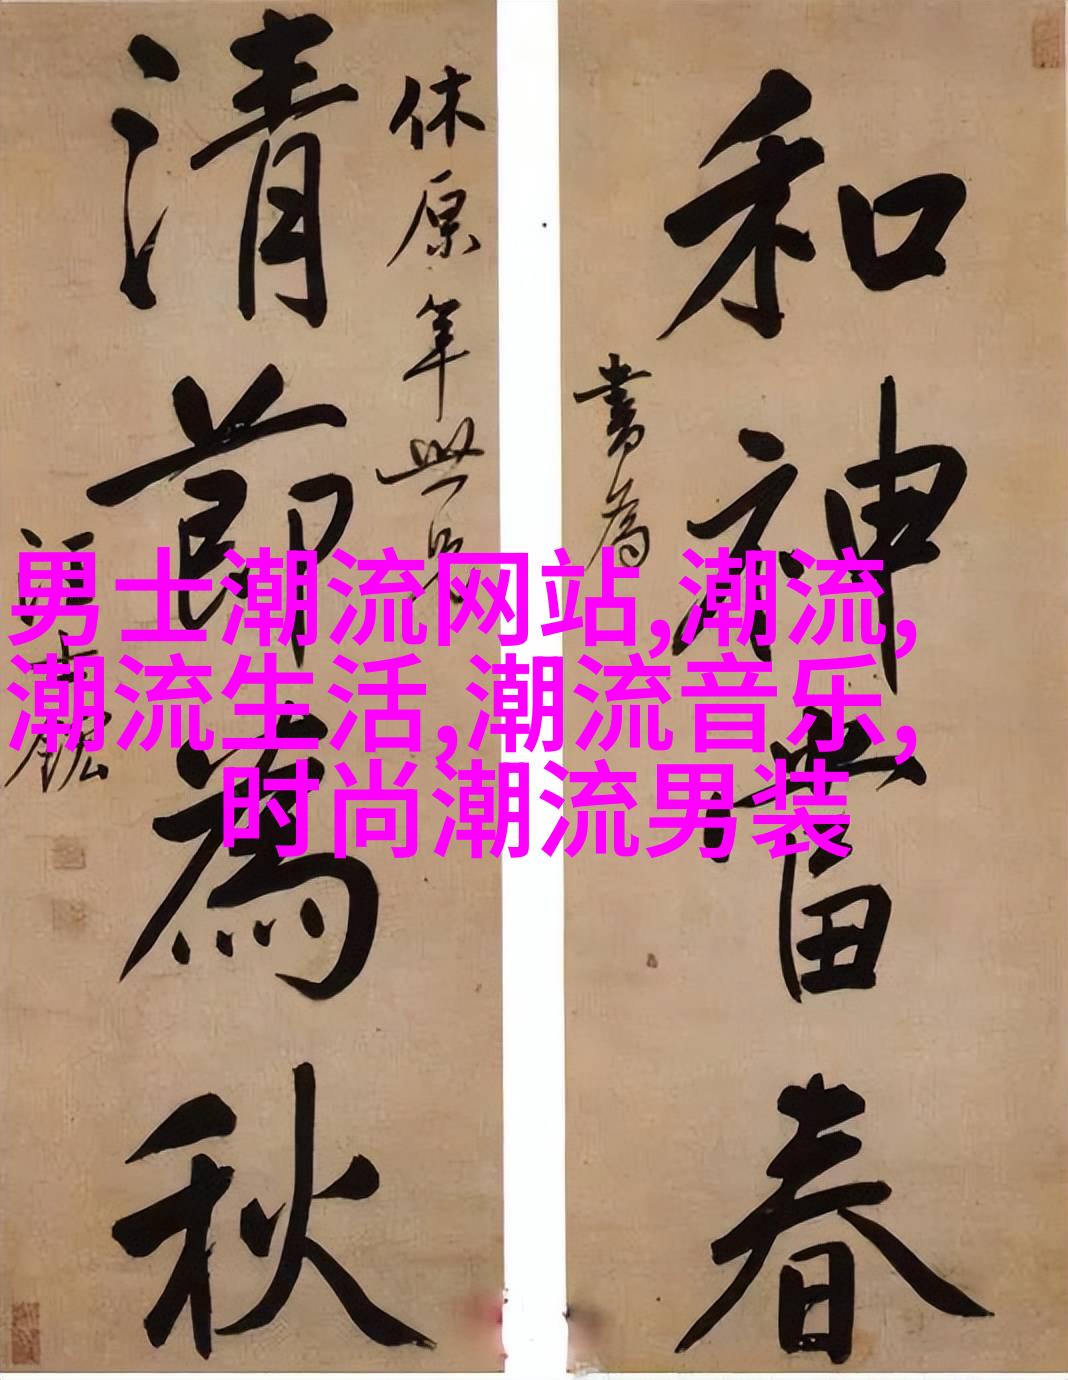 和神當春
清節為秋
书为
休原年世兄
男士潮流网站,潮流,
潮流生活,潮流音乐,
时尚潮流男装